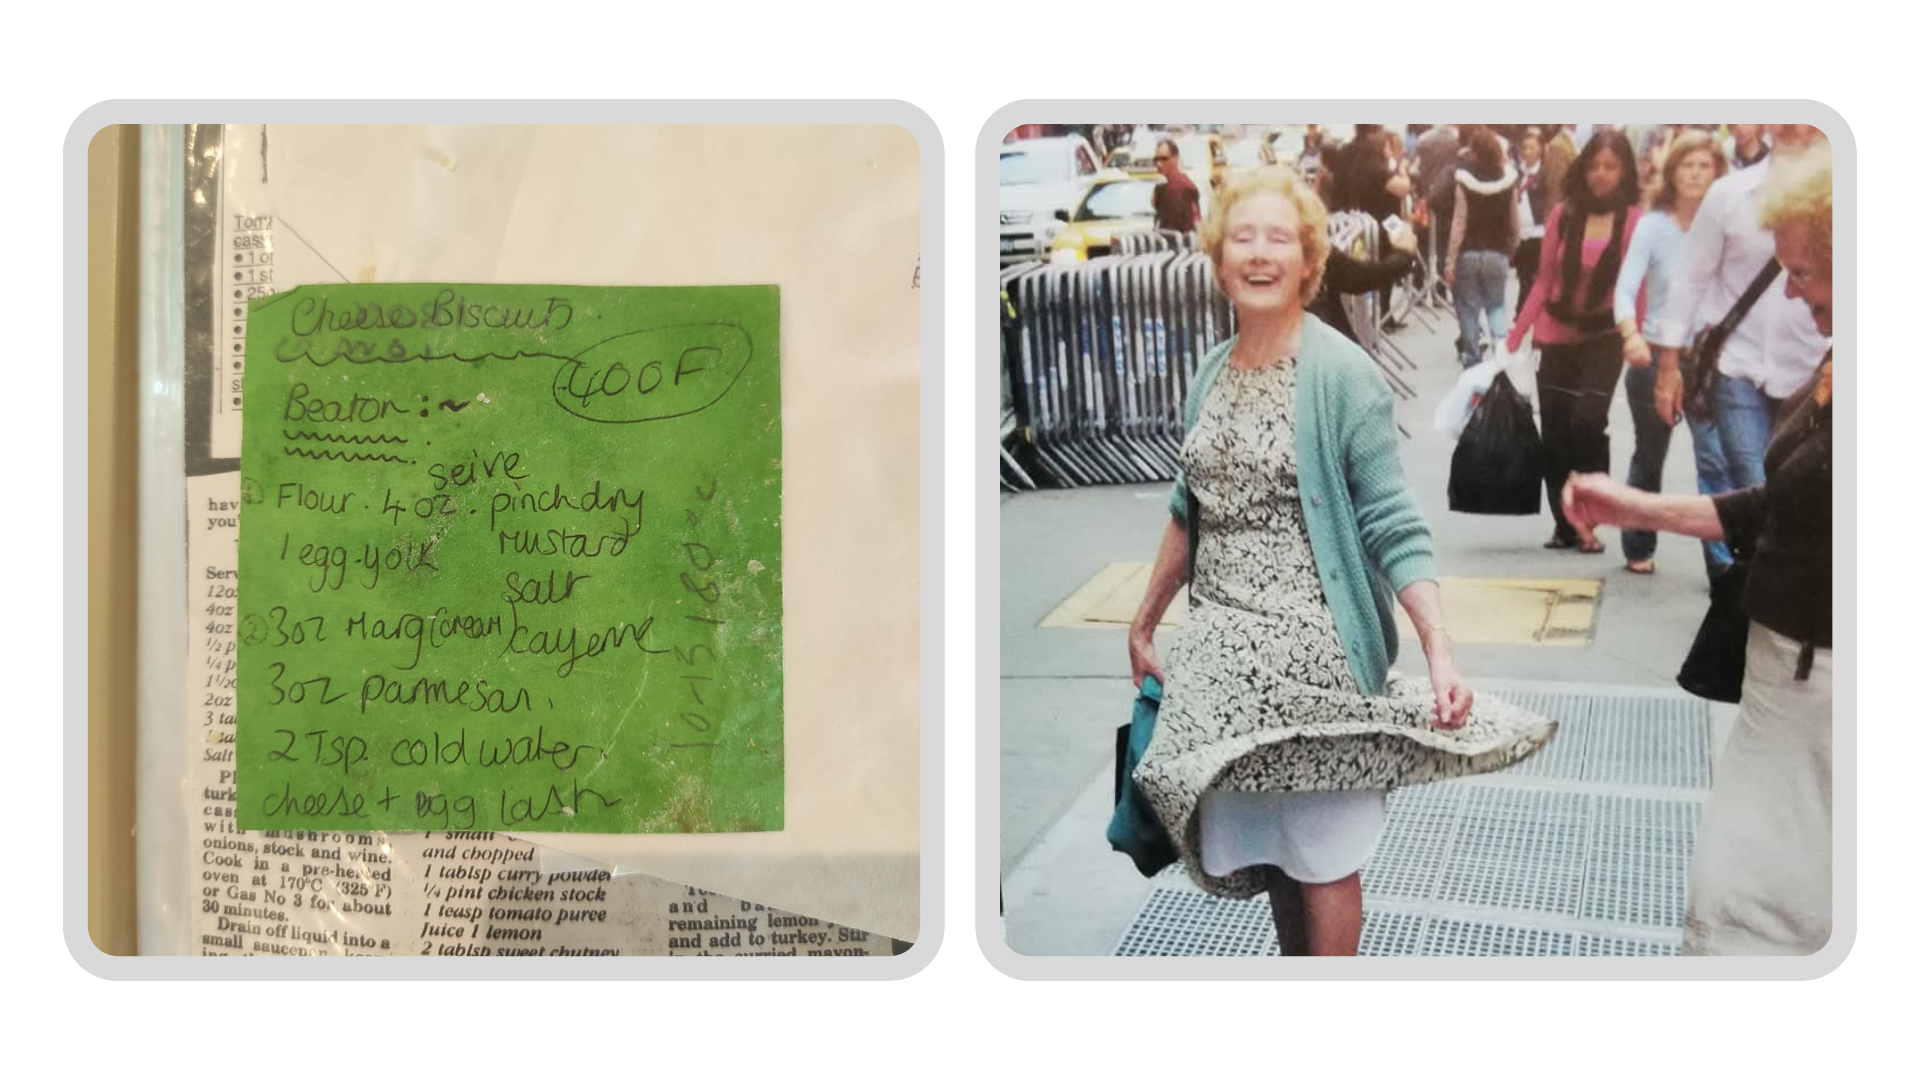 Toma
cass
• 1 or
• 1 st
• 25g
Cheese Biscuits
400F
Beaton :~
seive
① Flour . 4 oz . pinch dry
1 egg-yolk mustard
salt
② 3oz Marg (cream) cayenne
3oz parmesan,
2 Tsp. cold water.
cheese + egg last
10-15 180°C
hav
you'
Serv
12oz
4oz
4oz
½ p
¼ p
1½
2oz
3 ta
Salt
Pl
turk
cass
with mushrooms,
onions, stock and wine.
Cook in a pre-heated
oven at 170°C (325°F)
or Gas No 3 for about
30 minutes.
Drain off liquid into a
small saucepan,
1 small
and chopped
1 tablsp curry powder
¼ pint chicken stock
1 teasp tomato puree
Juice 1 lemon
2 tablsp sweet chutney
and
remaining lemon
and add to turkey. Stir
in the curried mayon-